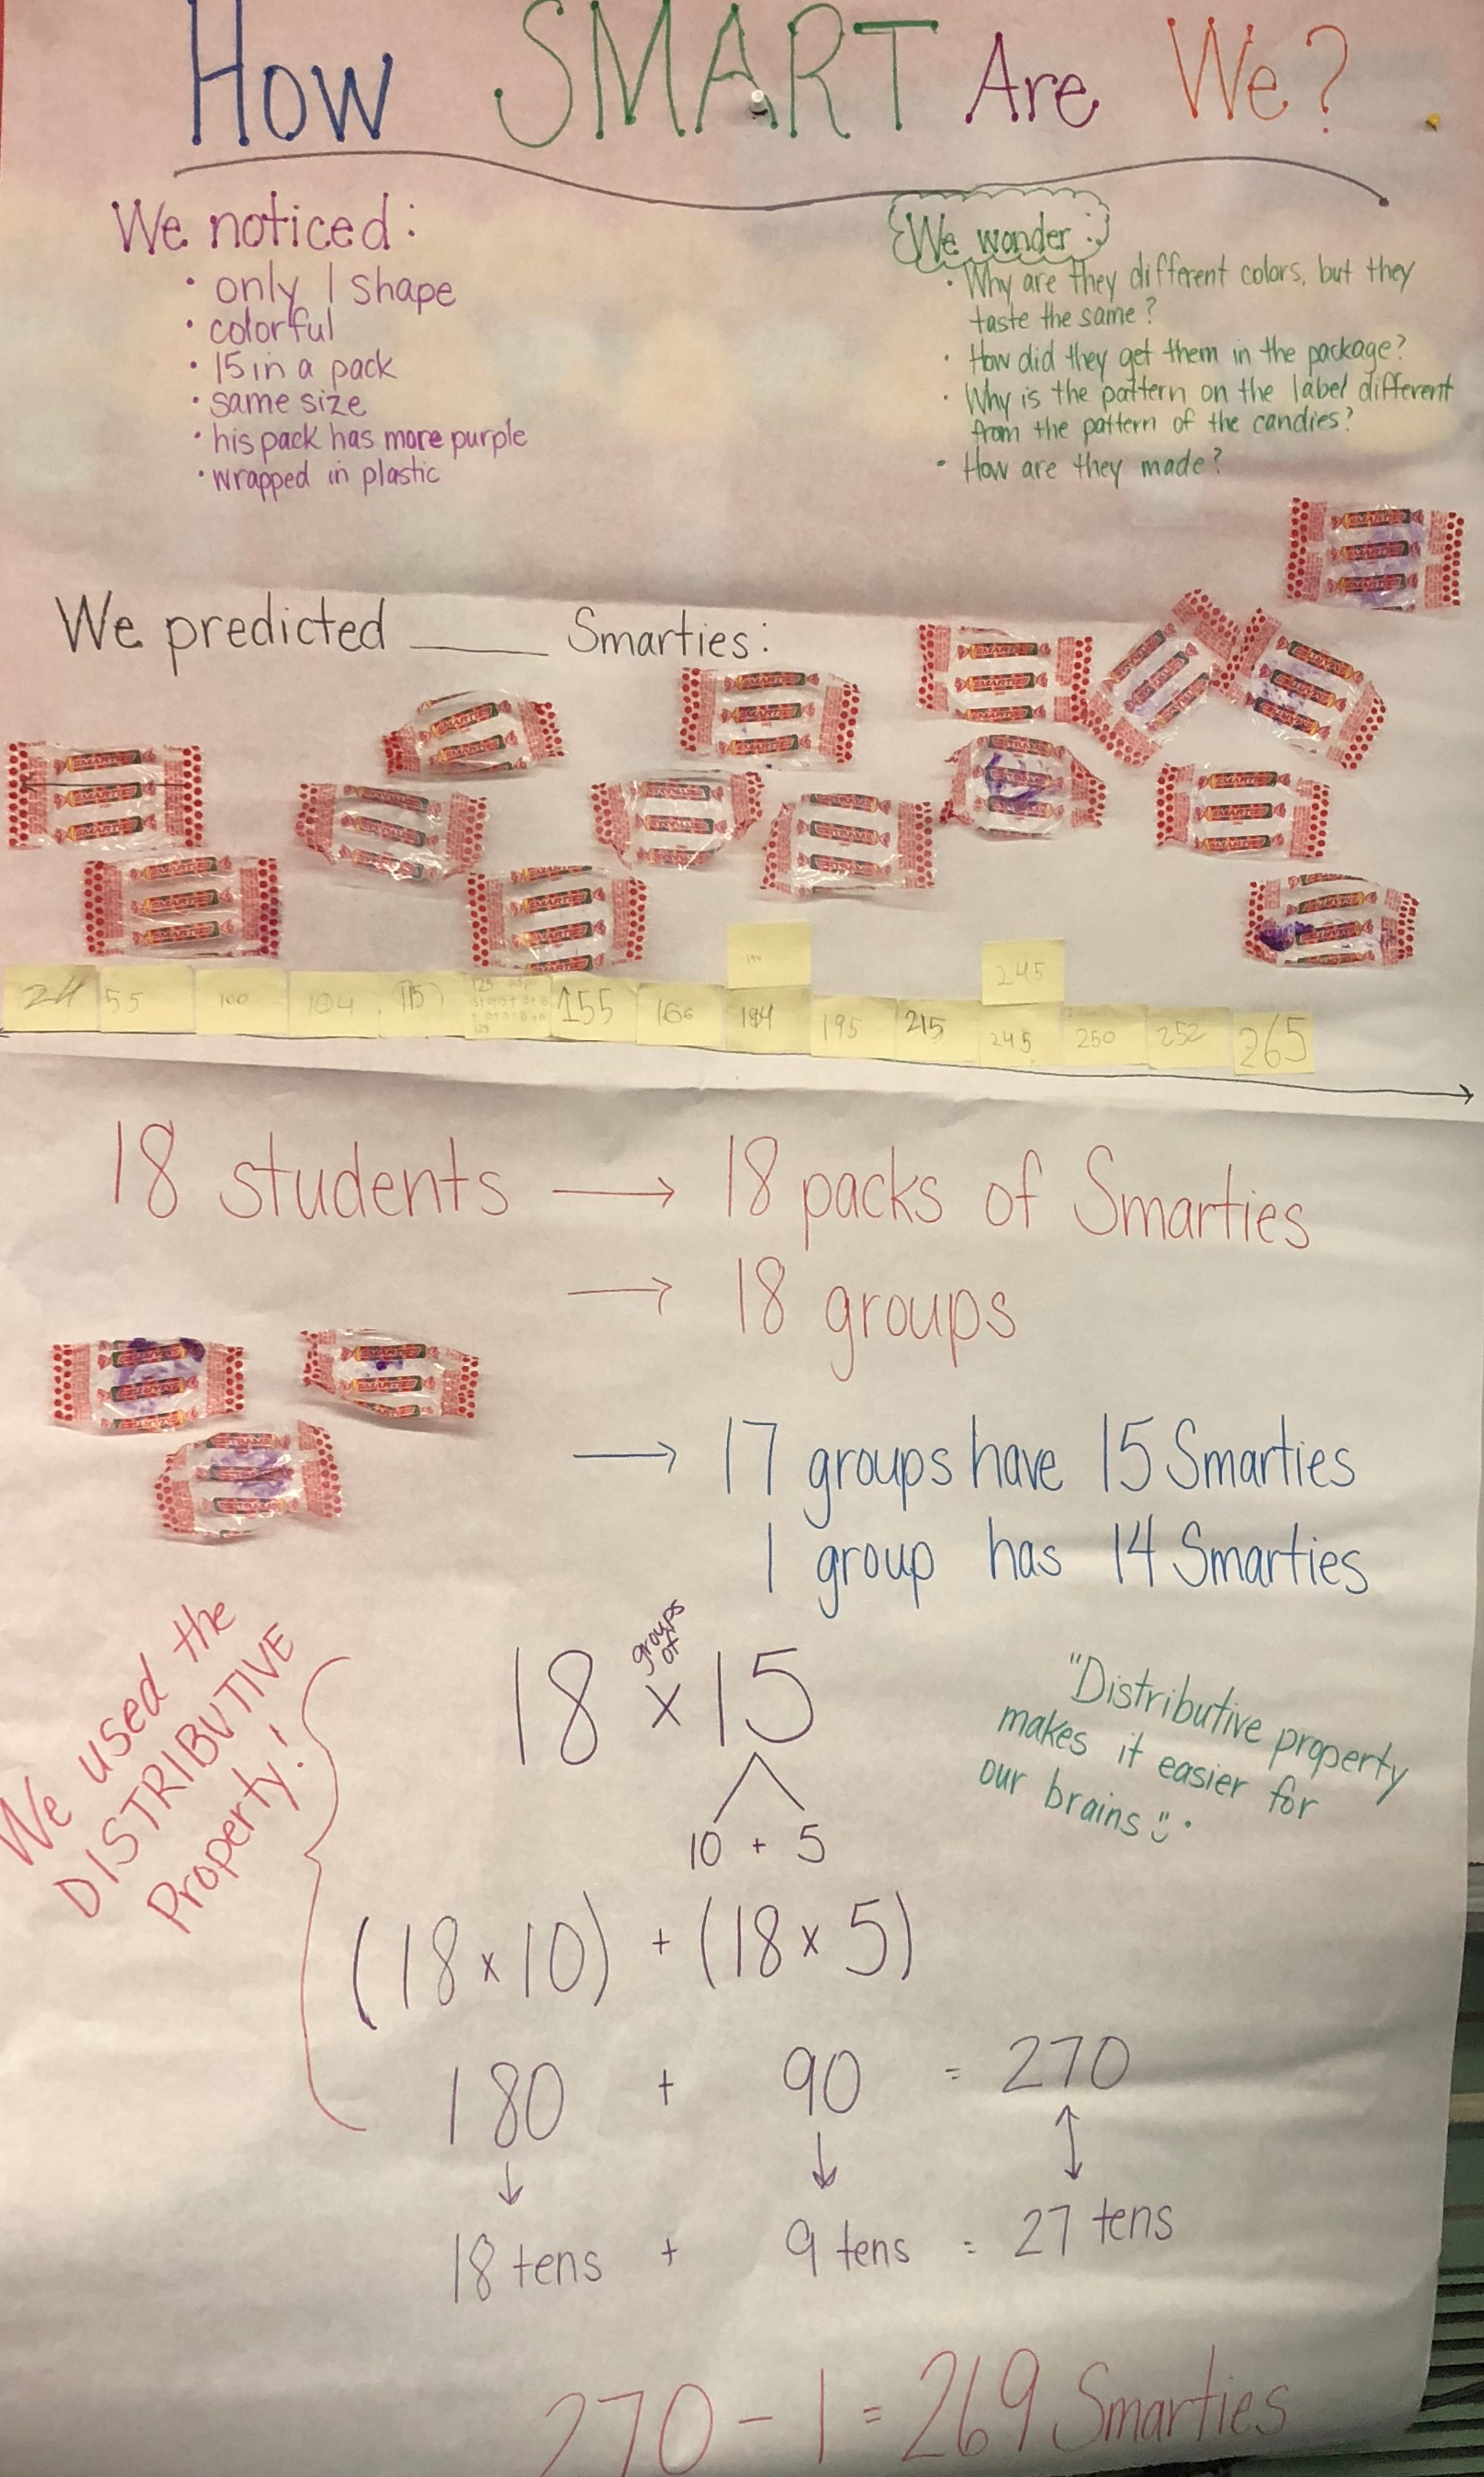 How SMART Are We?
We noticed:
• only 1 shape
• colorful
• 15 in a pack
• same size
• his pack has more purple
• wrapped in plastic
We wonder:
• Why are they different colors, but they
taste the same?
• How did they get them in the package?
• Why is the pattern on the label different
from the pattern of the candies?
• How are they made?
We predicted ____ Smarties:
194 245
24 55 100 104 115 125 155 166 194 195 215 245 250 252 265
18 students → 18 packs of Smarties
→ 18 groups
→ 17 groups have 15 Smarties
1 group has 14 Smarties
We used the
DISTRIBUTIVE
Property!
groups
of
18 x 15
10 + 5
"Distributive property
makes it easier for
our brains
(18 x 10) + (18 x 5)
180 + 90 = 270
18 tens + 9 tens = 27 tens
270 - 1 = 269 Smarties